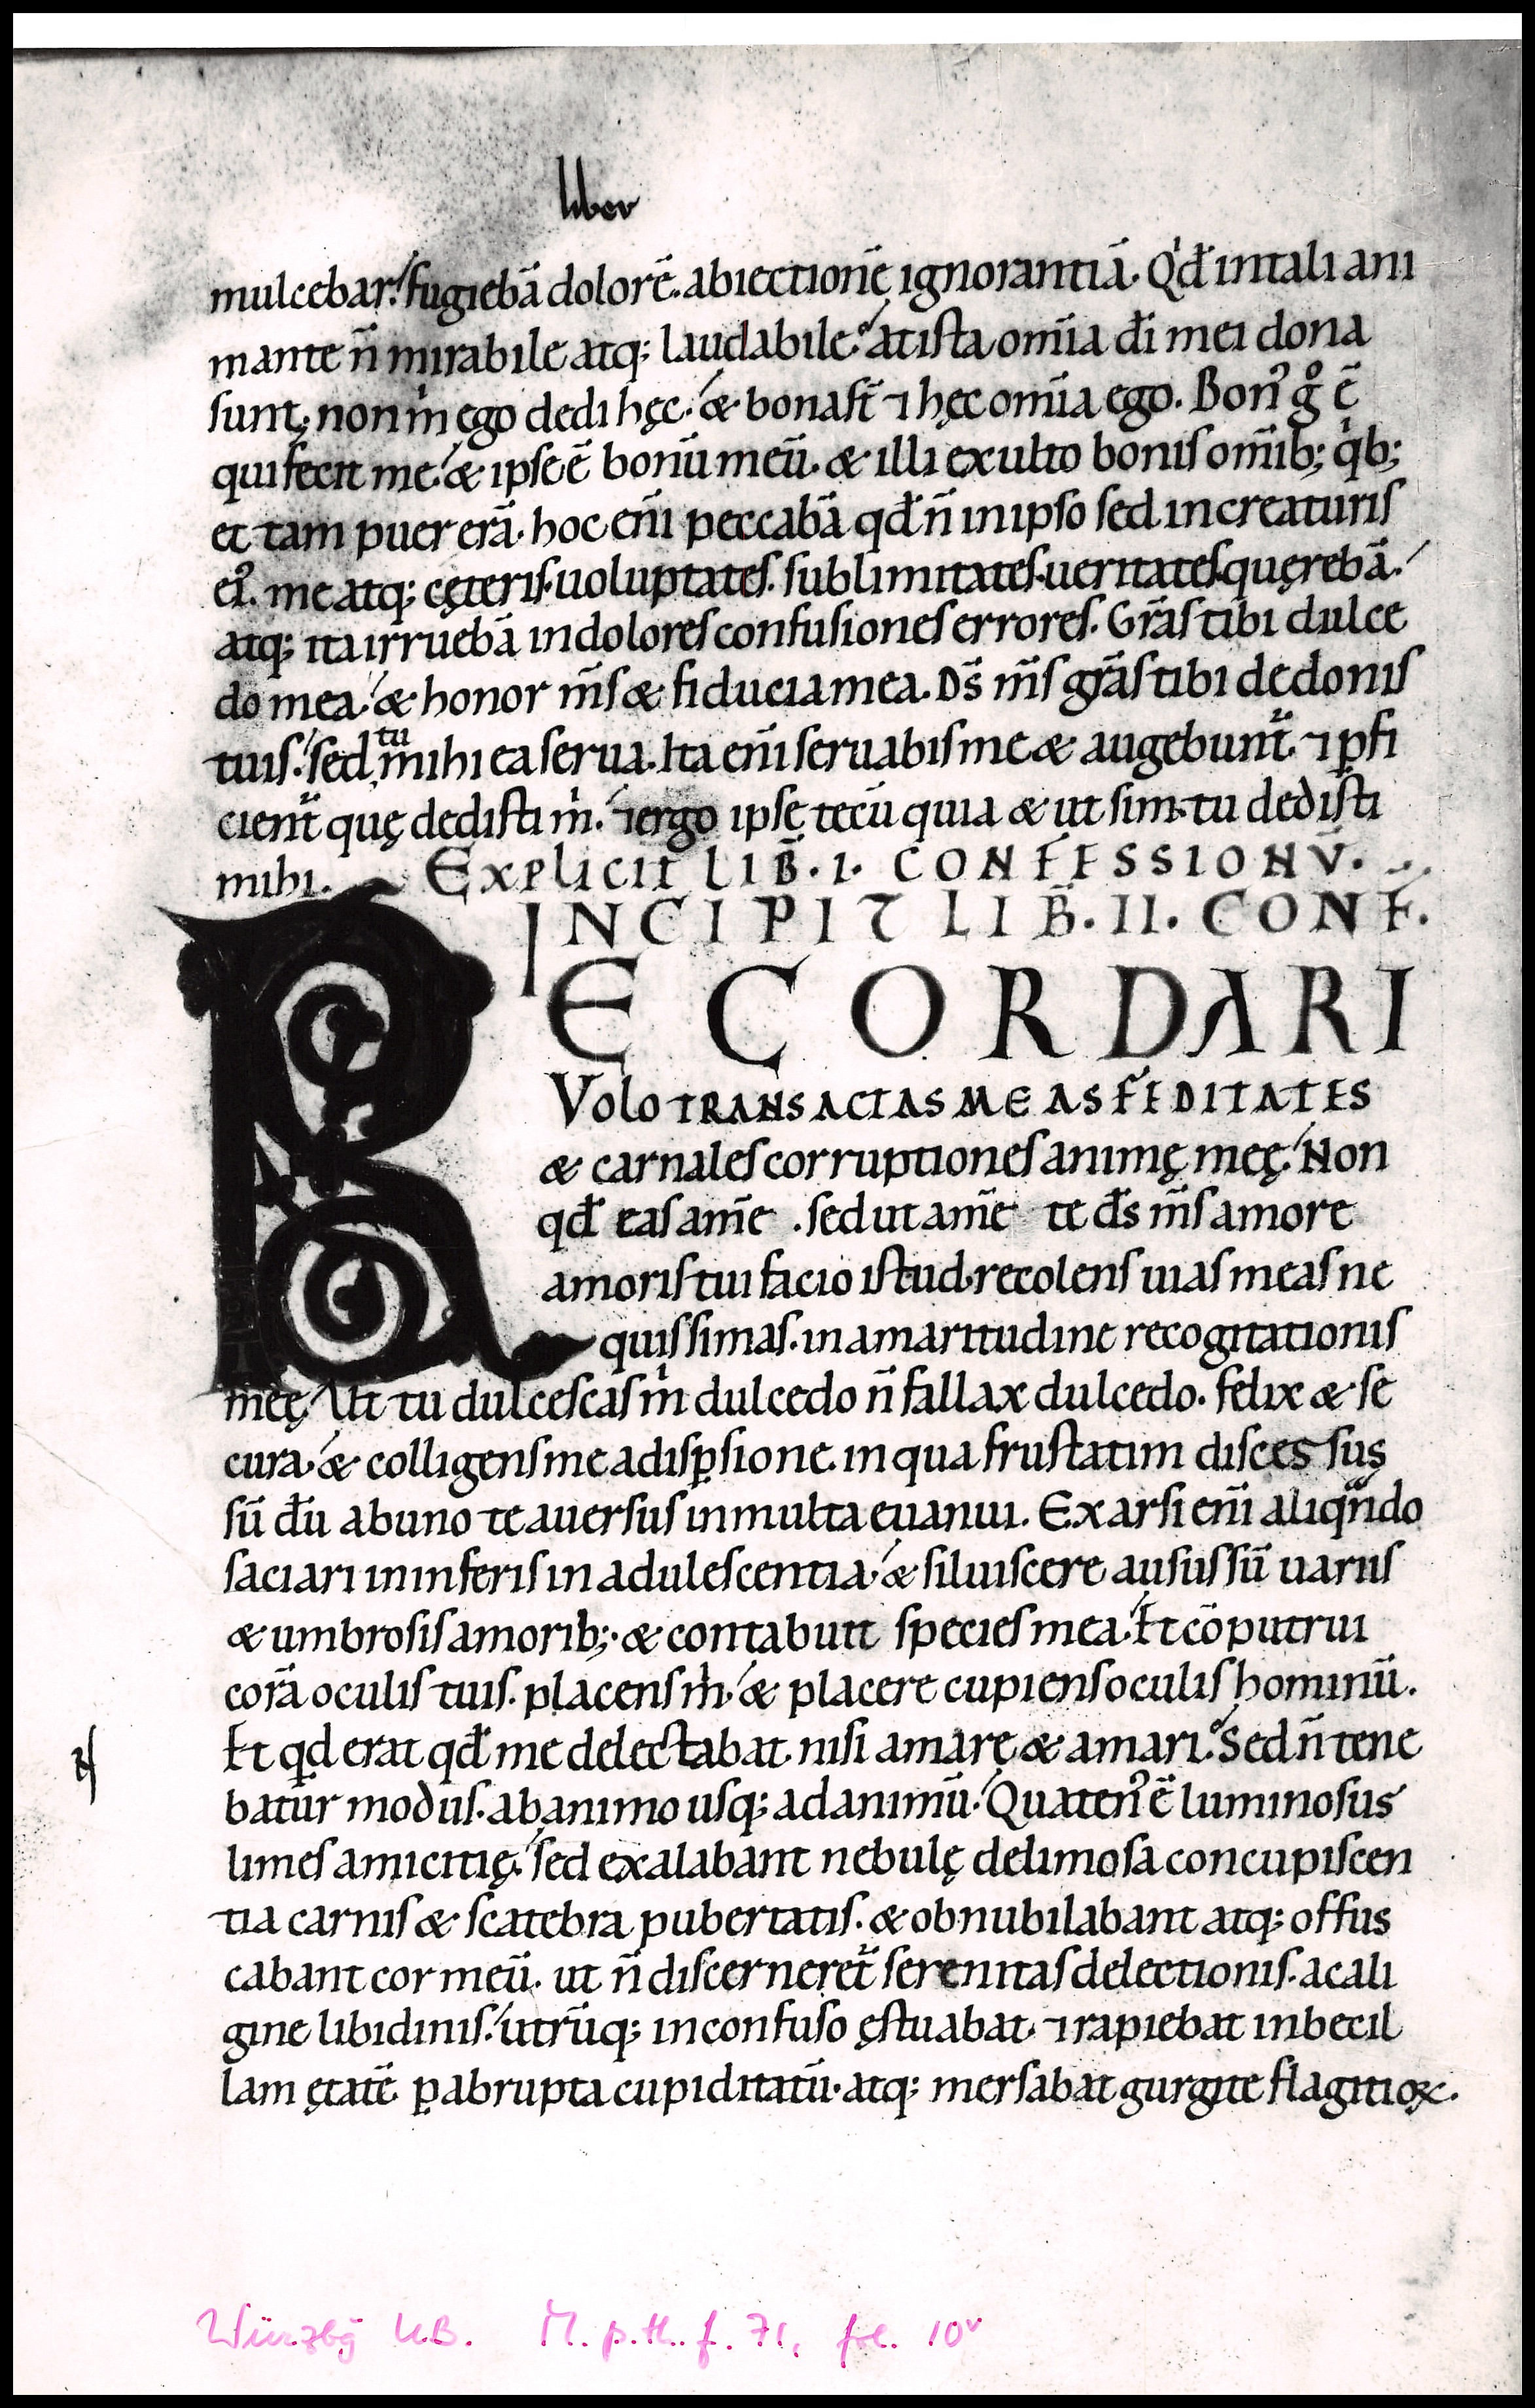 liber
mulcebar. fugiebā dolorē. abiectionē ignorantiā. Qd̄ in tali ani
mante n̄ mirabile atq; laudabile. at ista om̄ia di mei dona
sunt. non m ego dedi hęc. & bona st̄ ⁊ hęc om̄ia ego. Bonꝰ gͦ ē
qui fecit me. & ipse ē bonū meū. & illi exulto bonis om̄ib; qb;
et tam puer erā. hoc eni peccabā qd̄ n̄ in ipso sed in creaturis
eiꝰ. me atq; cęteris. uoluptates. sublimitates. ueritates quęrebā.
atq; ita irruebā in dolores confusiones errores. Grās tibi dulce
do mea. & honor m̄s & fiducia mea. Ds̄ m̄s grās tibi de donis
tuis. sed tu mihi ea serua. Ita eni seruabis me & augebunt̄ ⁊ ꝑfi
cient̄ quę dedisti m. ⁊ ergo ipse tecū quia & ut sim tu dedisti
mihi. Explicit LIB̄. I. CONFESSIONV̄.
INCIPIT LIB̄. II. CONF̄.
RECORDARI
Volo TRANSACTAS MEAS FEDITATES
& carnales corruptiones animę meę. Non
qd̄ eas am̄e . sed ut am̄e te ds̄ m̄s amore
amoris tui facio istud. recolens uias meas ne
quissimas. in amaritudine recogitationis
meę. Ut tu dulcescas m dulcedo n̄ fallax dulcedo. felix & se
cura. & colligens me a dispsione. in qua frustatim discessus
sū dū ab uno te auersus in multa euanui. Exarsi eni aliqndo
saciari in inferis in adulescentia. & siluiscere ausus sū uariis
& umbrosis amorib;. & contabuit species mea. Et cōputrui
corā oculis tuis. placens m. & placere cupiens oculis hominū.
Et qd erat qd̄ me delectabat. nisi amare & amari. Sed n̄ tene
batur modus. ab animo usq; ad animū. Quatenꝰ ē luminosus
limes amicitię. sed exalabant nebulę de limosa concupiscen
tia carnis & scatebra pubertatis. & obnubilabant atq; offus
cabant cor meū. ut n̄ discerneret̄ serenitas delectionis. a cali
gine libidinis. utrūq; in confuso ęstuabat. ⁊ rapiebat inbecil
lam ętatē ꝑ abrupta cupiditatū. atq; mersabat gurgite flagitioꝝ.
Würzbg UB. M. p. th. f. 71, fol. 10v